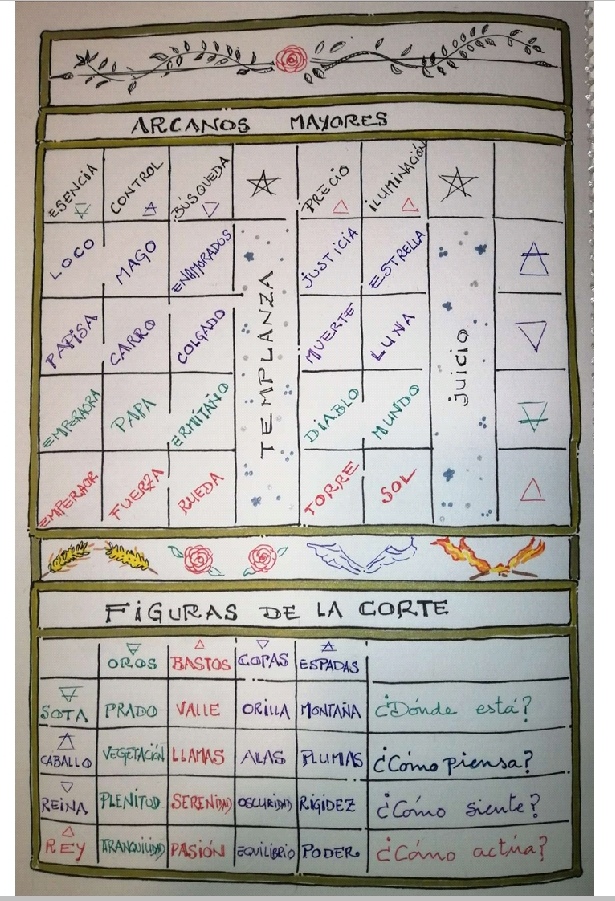 ARCANOS MAYORES
ESENCIA CONTROL BÚSQUEDA PRECIO ILUMINACIÓN
LOCO MAGO ENAMORADOS JUSTICIA ESTRELLA
PAPISA CARRO COLGADO TEMPLANZA MUERTE LUNA JUICIO
EMPERAORA PAPA ERMITAÑO DIABLO MUNDO
EMPERAOR FUERZA RUEDA TORRE SOL
FIGURAS DE LA CORTE
OROS BASTOS COPAS ESPADAS
SOTA PRADO VALLE ORILLA MONTAÑA ¿Dónde está?
CABALLO VEGETACIÓN LLAMAS ALAS PLUMAS ¿Cómo piensa?
REINA PLENITUD SERENIDAD OSCURIDAD RIGIDEZ ¿Cómo siente?
REY TRANQUILIDAD PASIÓN EQUILIBRIO PODER ¿Cómo actúa?